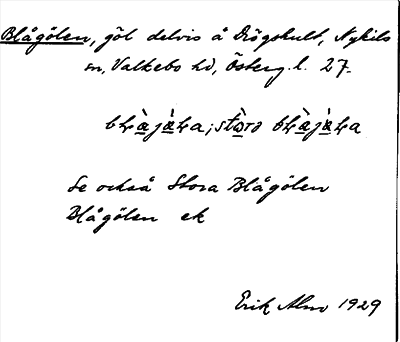 Blågölen, göl delvis å Drögshult, Nykils
sn, Valkebo hd, Österg. l. 27.
Se också Stora Blågölen
Blågölen ek
Erik Alm 1929